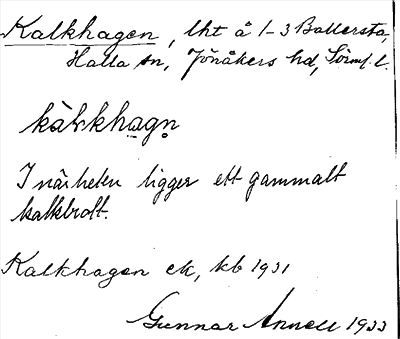 Kalkhagen, lht å 1-3 Ballersta,
Halla sn, Jönåkers hd, Sörml. l.
kàlkhagn̥
I närheten ligger ett gammalt
kalkbrott.
Kalkhagen ek, kb 1931
Gunnar Annell 1933